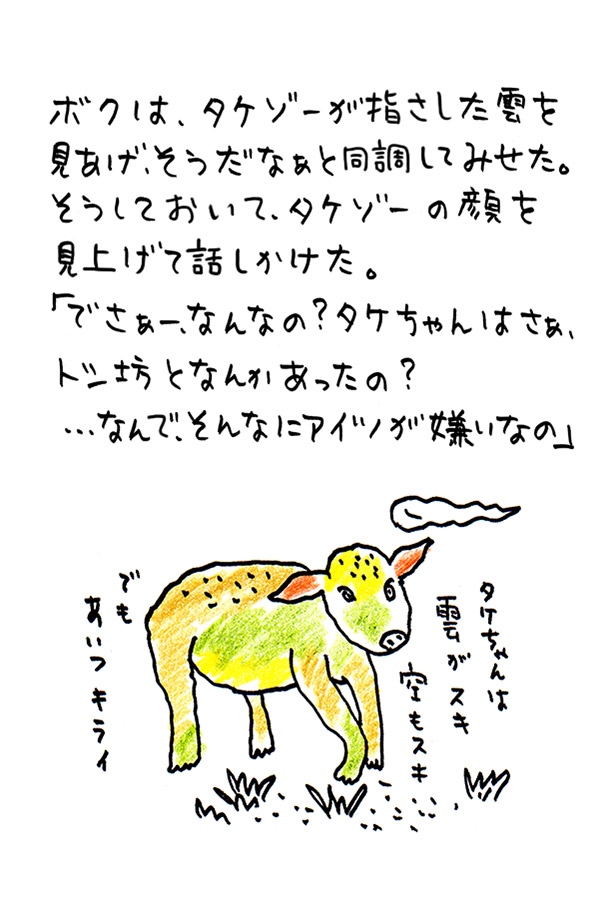 ボクは、タケゾーが指さした雲を
見あげ、そうだなぁと同調してみせた。
そうしておいて、タケゾーの顔を
見上げて話しかけた。
「でさぁー、なんなの?タケちゃんはさぁ、
トン坊となんかあったの?
…なんで、そんなにアイツが嫌いなの」
タケちゃんは
雲がスキ
空もスキ
でも
あいつキライ